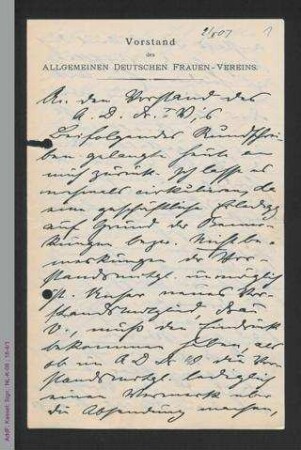 2/807 1
Vorstand
des
ALLGEMEINEN DEUTSCHEN FRAUEN-VEREINS.
An den Vorstand des
A. D. F.-V.'s
Beifolgendes Rundschrei-
ben gelangte heute an
mich zurück. Ich lasse es
nochmals zirkulieren, da
eine geschäftliche Erledigg
auf Grund der Bemer-
kungen bezw. Nichtbe-
merkungen der Vor-
standsmitgl. unmöglich
ist. Unser neues Vor-
standsmitglied, Frau
B., muß den Eindruck
bekommen haben, als
ob im A D F V die Vor-
standsmitgl. lediglich
einen Vermerk über
die Absendung machen,
AddF, Kassel, Sign.: NL-K-08 ; 18-4/1